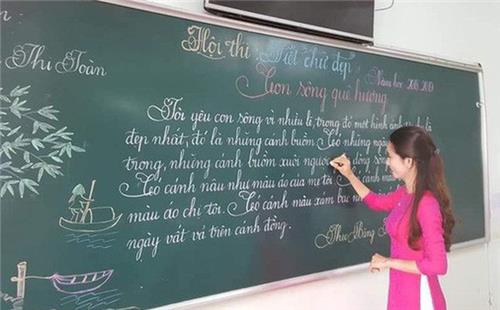 Hội thi Viết chữ đẹp
Thu Toàn
Năm học 2018-2019
Con sông quê hương
Tôi yêu con sông vì nhiều lẽ, trong đó một hình ảnh
đẹp nhất, đó là những cánh buồm. Có những ngày
trong, những cánh buồm xuôi ngược dòng sông
Có cánh nâu như màu áo của mẹ tôi. Có cánh
màu áo chị tôi. Có cánh màu xám bạc
ngày vất vả trên cánh đồng.
Thu Băng